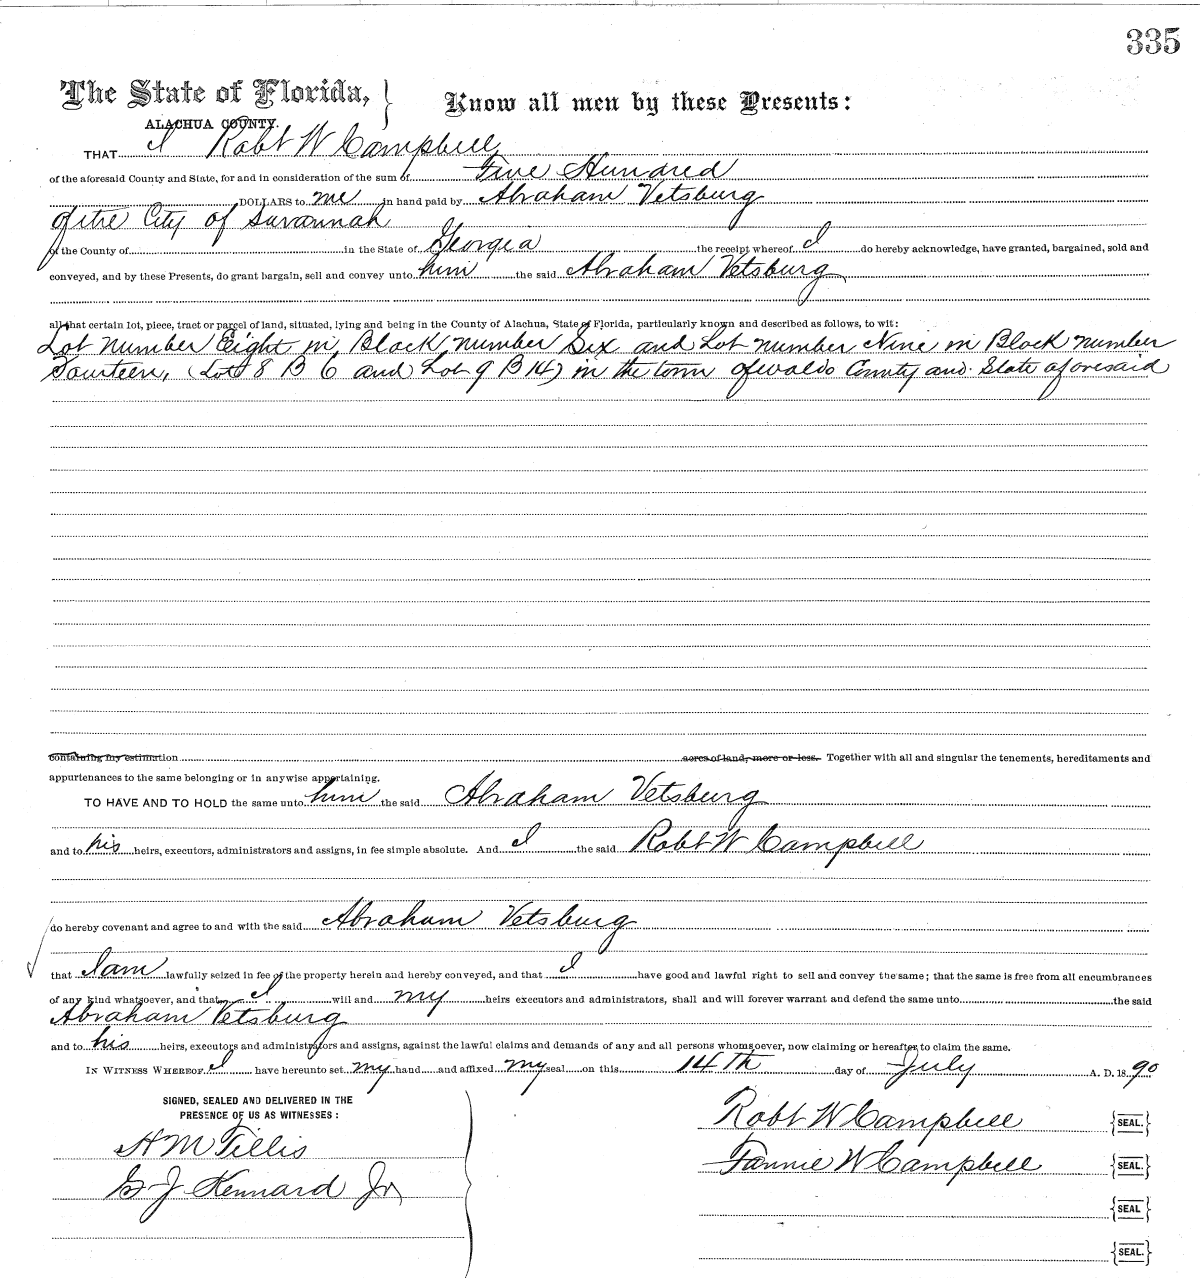 335
The State of Florida, } Know all men by these Presents:
ALACHUA COUNTY.
THAT I Robt W Campbell
of the aforesaid County and State, for and in consideration of the sum of Five Hundred
DOLLARS to me in hand paid by Abraham Vetsburg
of the City of Savannah
in the County of in the State of Georgia the receipt whereof I do hereby acknowledge, have granted, bargained, sold and
conveyed, and by these Presents, do grant bargain, sell and convey unto him the said Abraham Vetsburg
all that certain lot, piece, tract or parcel of land, situated, lying and being in the County of Alachua, State of Florida, particularly known and described as follows, to wit:
Lot number Eight in Block number Six and Lot number Nine in Block number
Fourteen, (Lot 8 B 6 and Lot 9 B 14) in the town of Waldo County and State aforesaid
containing my estimation acres of land, more or less. Together with all and singular the tenements, hereditaments and
appurtenances to the same belonging or in anywise appertaining.
TO HAVE AND TO HOLD the same unto him the said Abraham Vetsburg
and to his heirs, executors, administrators and assigns, in fee simple absolute. And I the said Robt W Campbell
do hereby covenant and agree to and with the said Abraham Vetsburg
that I am lawfully seized in fee of the property herein and hereby conveyed, and that I have good and lawful right to sell and convey the same; that the same is free from all encumbrances
of any kind whatsoever, and that I will and my heirs executors and administrators, shall and will forever warrant and defend the same unto the said
Abraham Vetsburg
and to his heirs, executors and administrators and assigns, against the lawful claims and demands of any and all persons whomsoever, now claiming or hereafter to claim the same.
IN WITNESS WHEREOF I have hereunto set my hand and affixed my seal on this 14th day of July A. D. 1890
SIGNED, SEALED AND DELIVERED IN THE
PRESENCE OF US AS WITNESSES:
H M Tillis
G J Kennard Jr
Robt W Campbell {SEAL.}
Fannie W Campbell {SEAL.}
{SEAL}
{SEAL.}